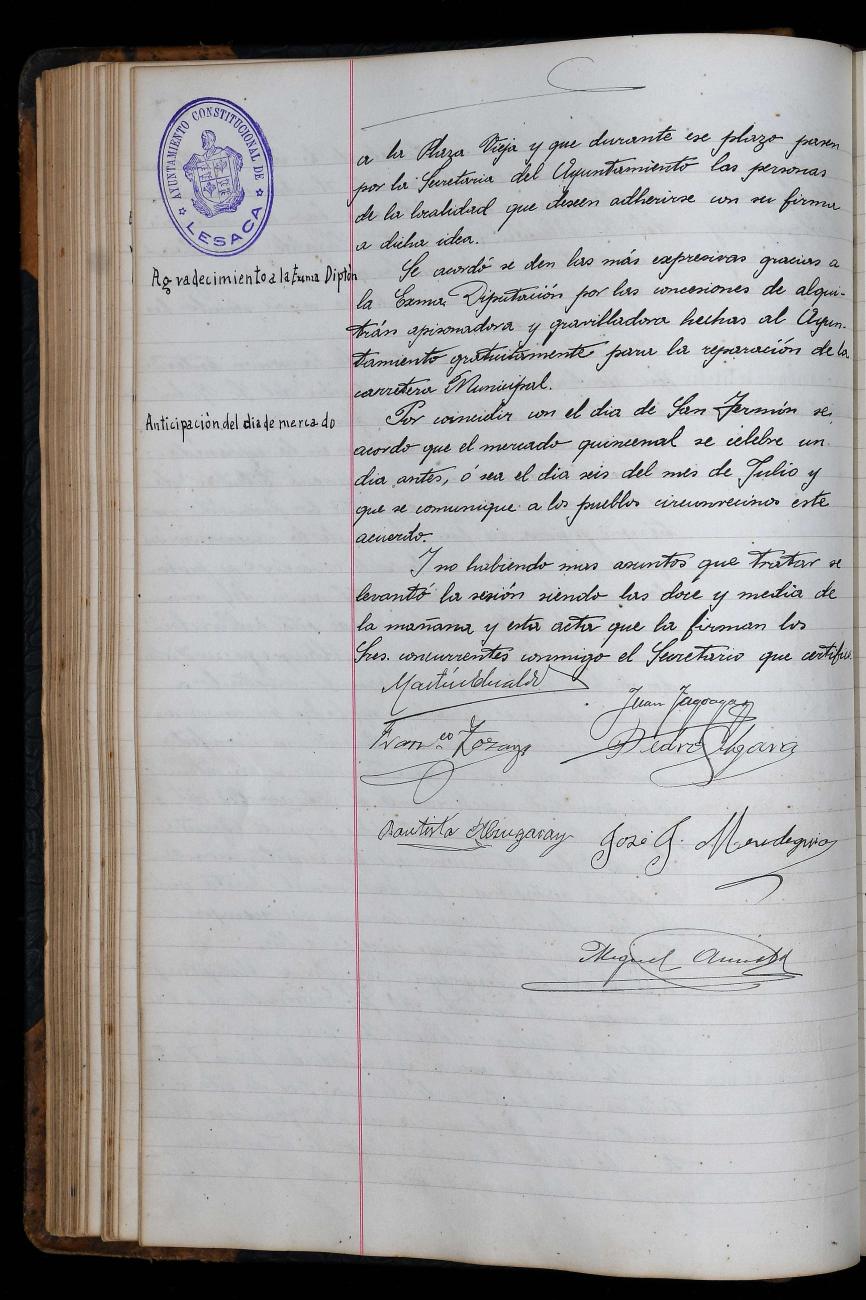 AYUNTAMIENTO CONSTITUCIONAL DE
LESACA
a la Plaza Vieja y que durante ese plazo pasen
por la Secretaria del Ayuntamiento las personas
de la localidad que deseen adherirse con su firma
a dicha idea.
Agradecimiento a la Exma Diptón
Se acordó se den las más expresivas gracias a
la Exma. Diputación por las concesiones de alqui-
trán apisonadora y gravilladora hechas al Ayun-
tamiento gratuitamente para la reparación de la
carretera Municipal.
Anticipación del dia de mercado
Por coincidir con el dia de San Fermin se
acordo que el mercado quincenal se celebre un
dia antes, ó sea el dia seis del mes de Julio y
que se comunique a los pueblos circunvecinos este
acuerdo.
Y no habiendo mas asuntos que tratar se
levantó la sesión siendo las doce y media de
la mañana y esta acta que la firman los
Sres. concurrentes conmigo el Secretario que certifico.
Martin
Juan
Franco
Pedro
Bautista
José J.
Miguel